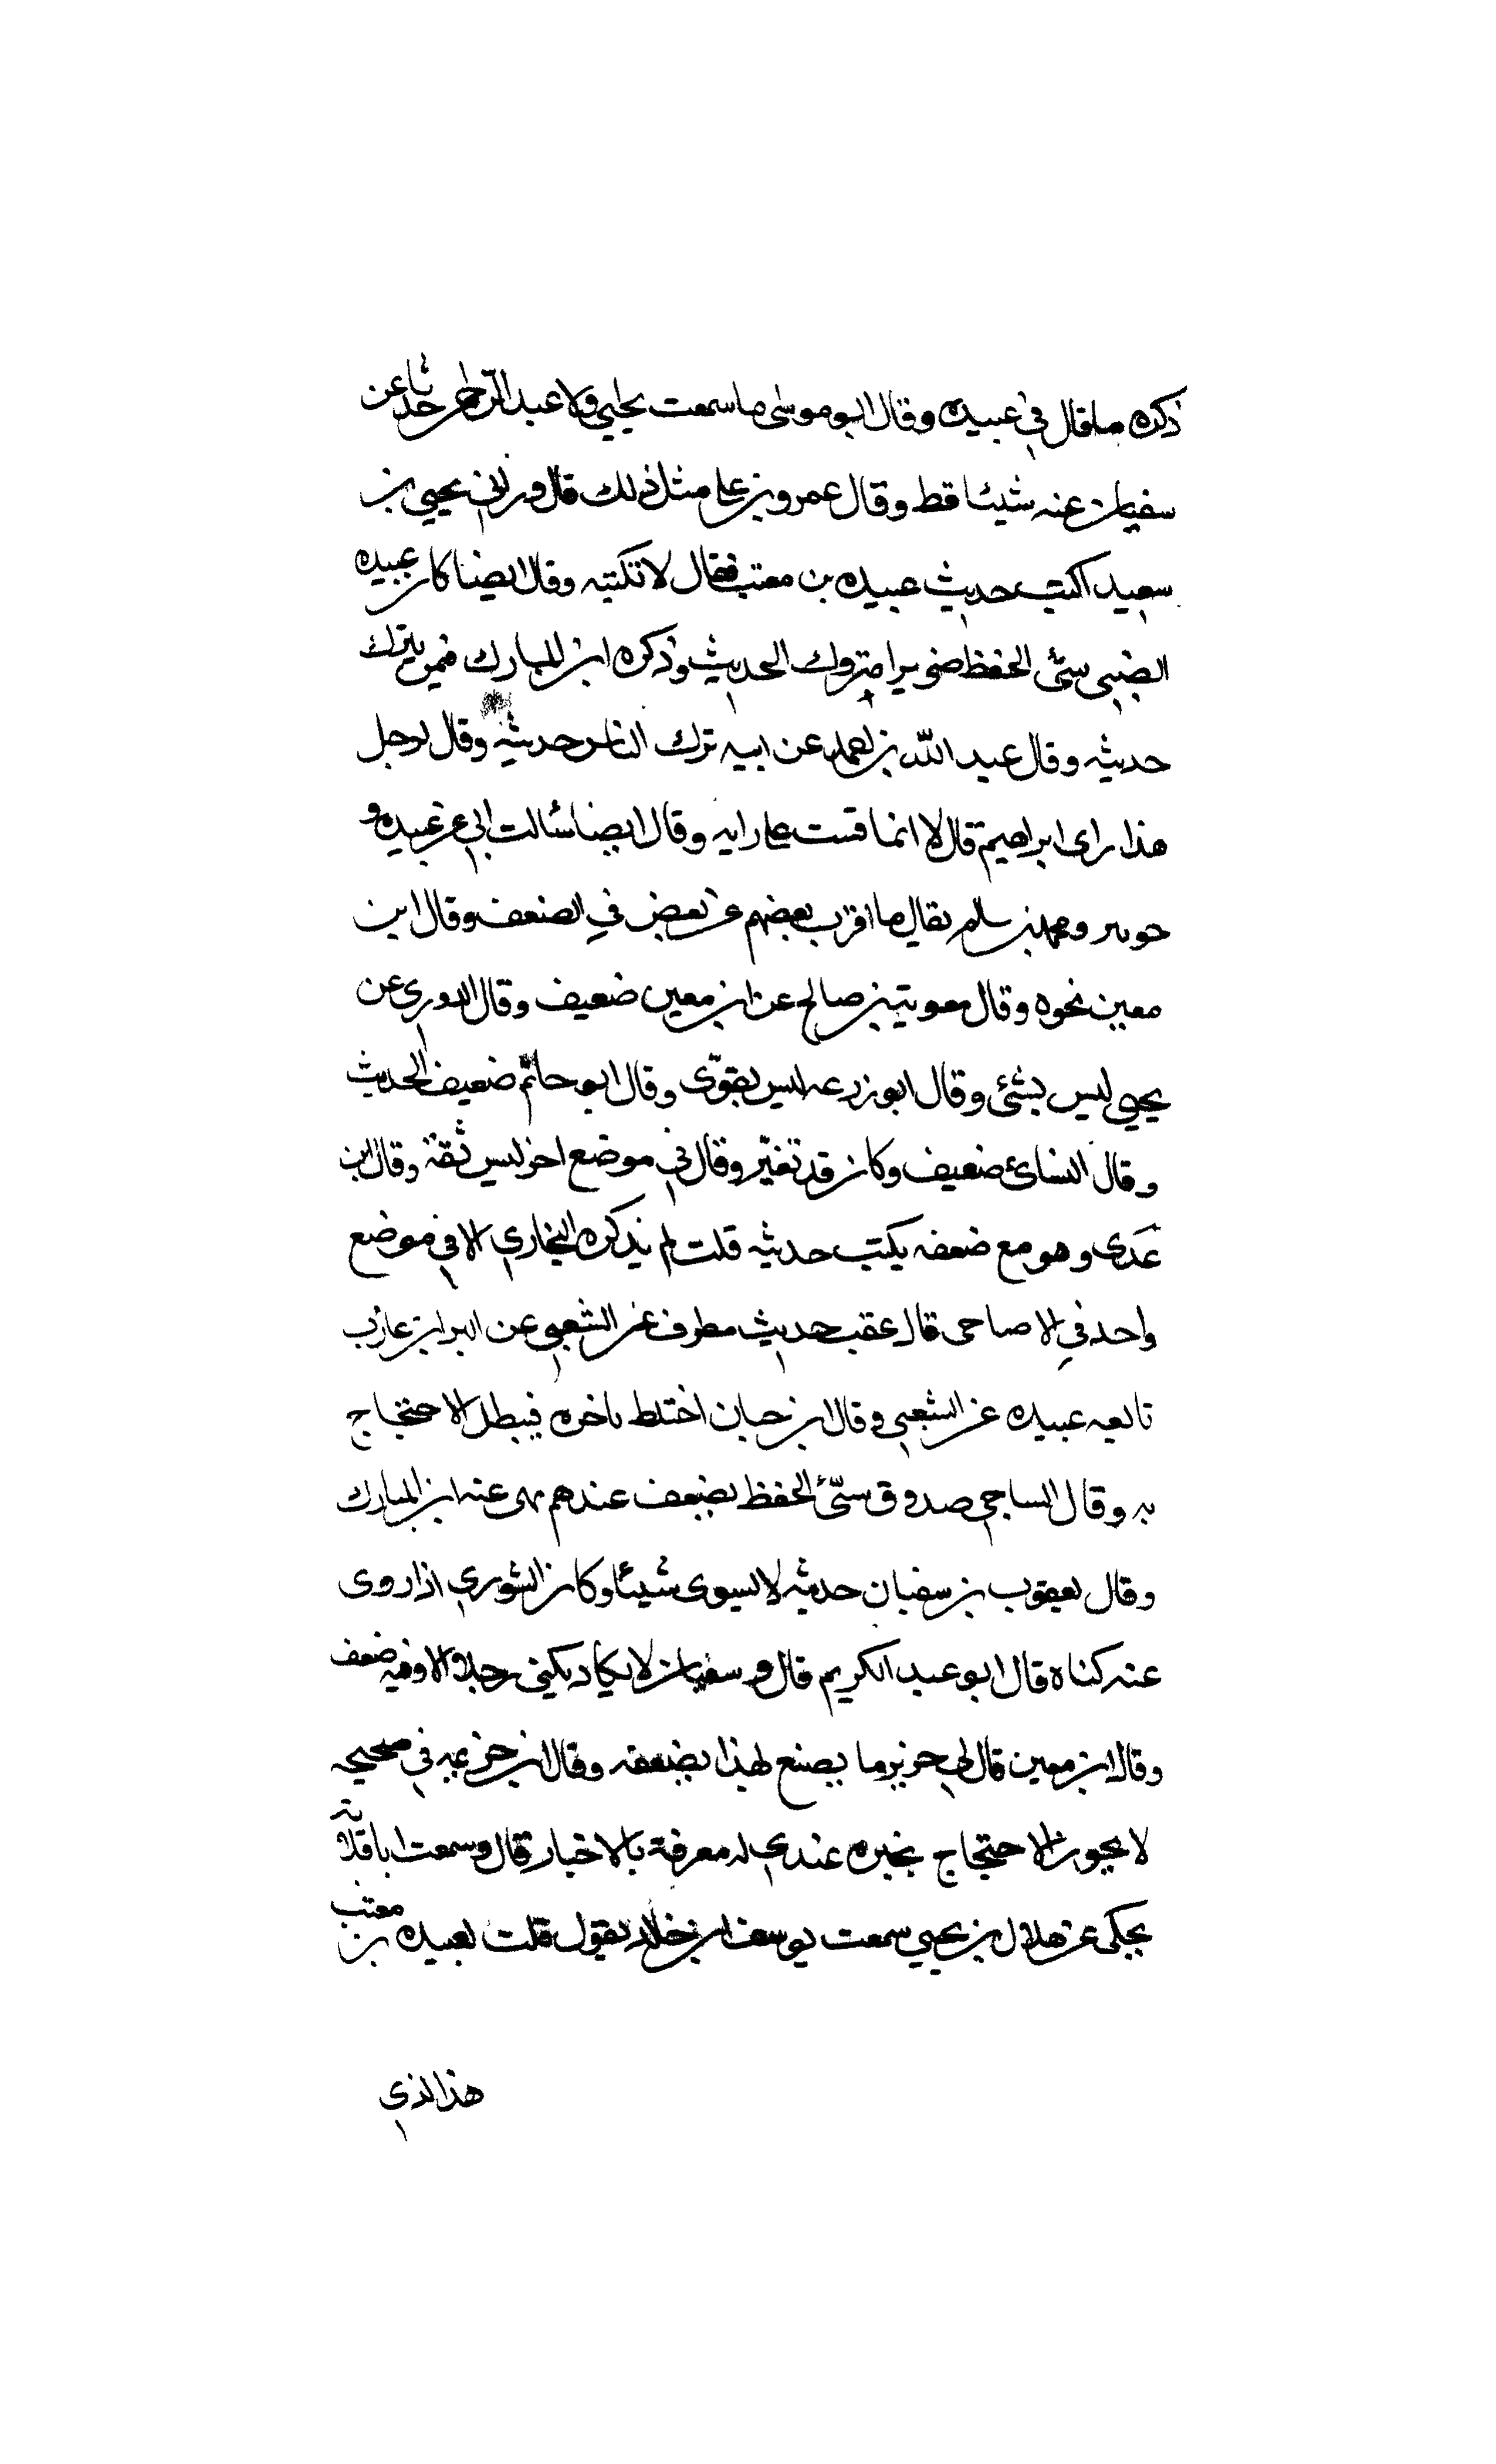 ذكره ما قال في عبيده وقال ابو موسى ما سمعت يحيى ولا عبد الرحمن حدثا عن
سفيان عنه شيئا قط وقال عمرو بن علي مثل ذلك قال وراني يحيى بن
سعيد اكتب حديث عبيده بن معتب فقال لا تكتبه وقال ايضا كان عبيده
الضبي سيّئ الحفظ ضريرا متروك الحديث وذكره ابن المبارك فيمن يترك
حديثه وقال عبد الله بن احمد عن ابيه ترك الناس حديثه وقال لرجل
هذا راى ابراهيم قال لا انما قست على رايه وقال ايضا سالت ابي عن عبيده و
جويبر ومحمد بن سالم فقال ما اقرب بعضهم من بعض في الضعف وقال ابن
معين نحوه وقال معوية بن صالح عن ابن معين ضعيف وقال الدوري عن
يحيى ليس بشئ وقال ابو زرعه ليس بقوّى وقال ابو حاتم ضعيف الحديث
وقال النسائ ضعيف وكان قد تغيّر وقال في موضع اخر ليس ثقة وقال ابن
عدى وهو مع ضعفه يكتب حديثه قلت لم يذكره البخاري الا في موضع
واحد في الاضاحى قال عقب حديث مطرف عن الشعبي عن البرا بن عازب
تابعه عبيده عن الشعبي وقال ابن حبان اختلط باخره فبطل الاحتجاج
به وقال الساجي صدوق سيّئ الحفظ يضعف عندهم نهى عنه ابن المبارك
وقال يعقوب بن سفيان حديثه لا يسوى شيئا وكان الثوري اذا روى
عنه كناه قال ابو عبد الكريم قال و سفيان لا يكاد يكنى رجلا الا وفيه ضعف
وقال ابن معين قال لي جرير ما يصنع لهذا يضعفه وقال ابن خزيمه في صحيحه
لا يجوز الاحتجاج بخبره عندي له معرفة بالاخبار قال وسمعت ابا قلابه
يحكى عن هلال بن يحيى سمعت يوسف بن خالد يقول قلت لعبيده بن معتب
هذا الذي